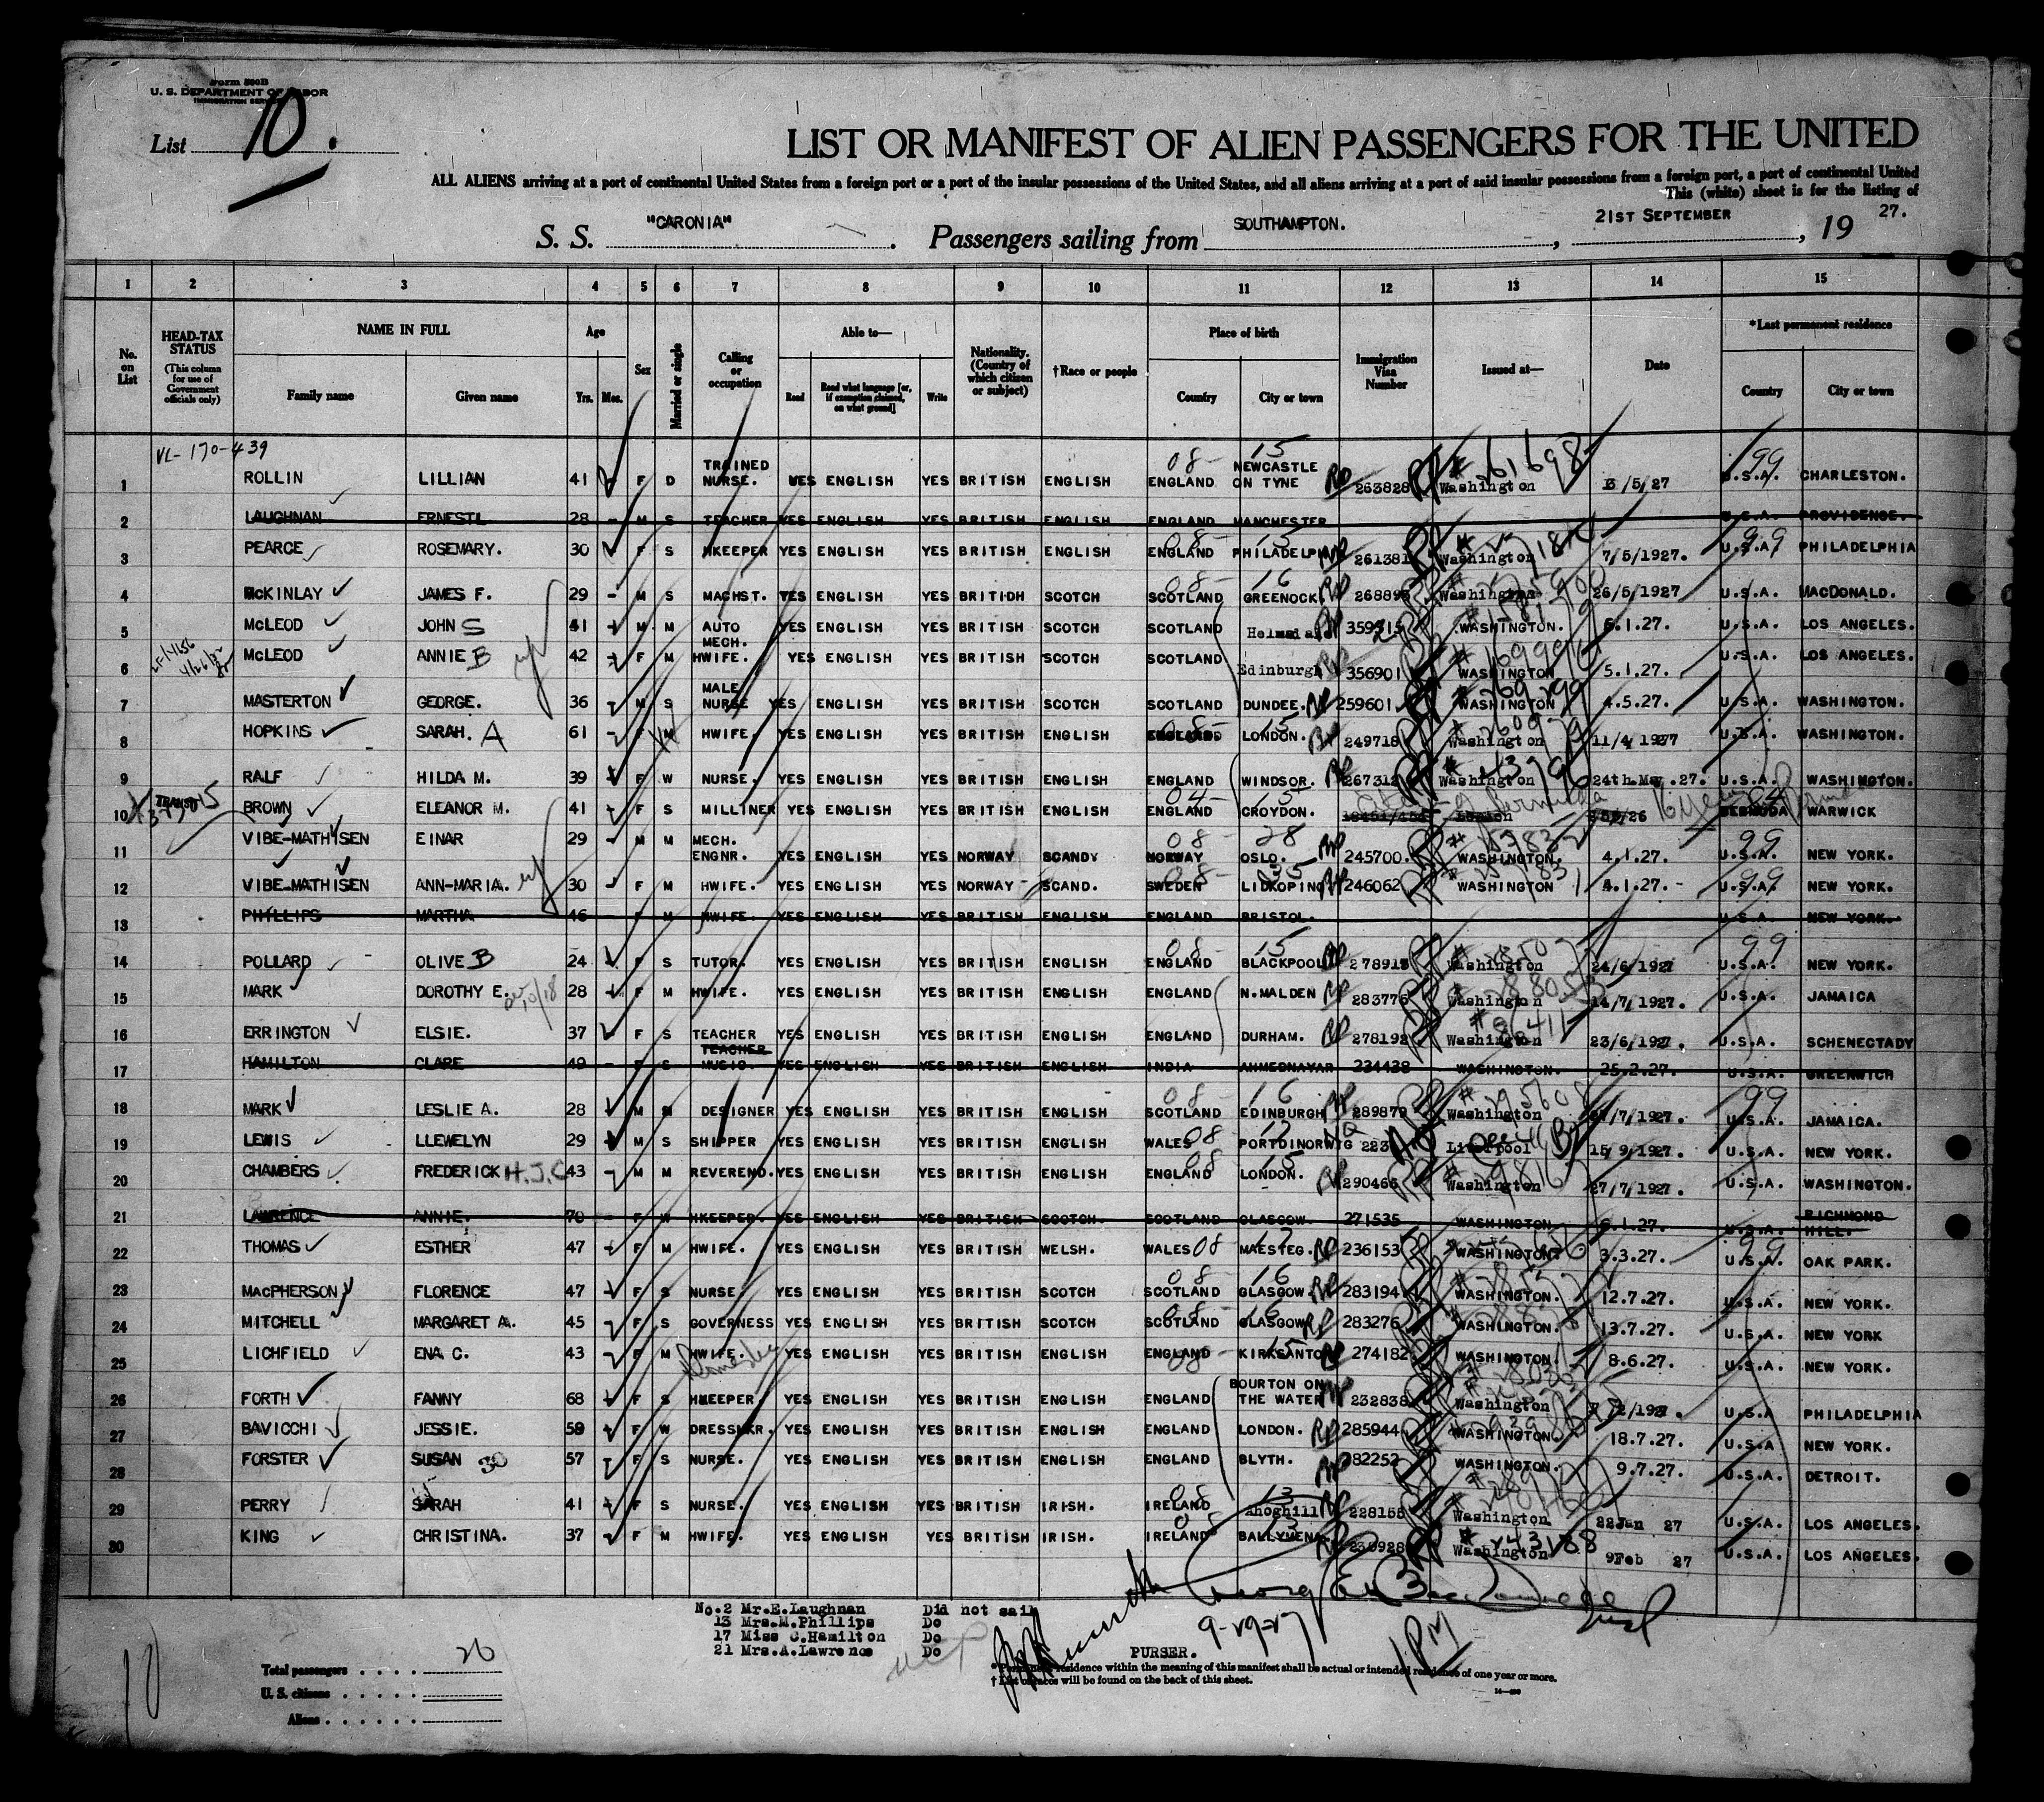 Form 500B
U. S. DEPARTMENT OF LABOR
IMMIGRATION SERVICE
List 10.
LIST OR MANIFEST OF ALIEN PASSENGERS FOR THE UNITED
ALL ALIENS arriving at a port of continental United States from a foreign port or a port of the insular possessions of the United States, and all aliens arriving at a port of said insular possessions from a foreign port, a port of continental United
This (white) sheet is for the listing of
S. S. "CARONIA". Passengers sailing from SOUTHAMPTON., 21ST SEPTEMBER, 19 27.
1 2 3 4 5 6 7 8 9 10 11 12 13 14 15
No. on List
HEAD-TAX STATUS (This column for use of Government officials only)
NAME IN FULL Family name Given name
Age Yrs. Mos.
Sex
Married or single
Calling or occupation
Able to— Read Read what language [or, if exemption claimed, on what ground] Write
Nationality. (Country of which citizen or subject)
†Race or people
Place of birth Country City or town
Immigration Visa Number
Issued at—
Date
*Last permanent residence Country City or town
VL-170-439
1 ROLLIN LILLIAN 41 F D TRAINED NURSE. YES ENGLISH YES BRITISH ENGLISH 08- 15 ENGLAND NEWCASTLE ON TYNE 263828 Washington #261698 /5/27 99 U.S.A. CHARLESTON.
2 LAUGHNAN ERNEST 28 - M S TEACHER YES ENGLISH YES BRITISH ENGLISH ENGLAND MANCHESTER U.S.A. PROVIDENCE.
3 PEARCE ROSEMARY. 30 F S HKEEPER YES ENGLISH YES BRITISH ENGLISH 08- 15 ENGLAND PHILADELPH 261381 Washington 7/5/1927. 99 U.S.A. PHILADELPHIA
4 McKINLAY JAMES F. 29 - M S MACHST. YES ENGLISH YES BRITIDH SCOTCH 08- 16 SCOTLAND GREENOCK. 26889 Washington 26/5/1927 U.S.A. MACDONALD.
5 McLEOD JOHN S 41 M M AUTO MECH. YES ENGLISH YES BRITISH SCOTCH SCOTLAND WASHINGTON. 5.1.27. U.S.A. LOS ANGELES.
6 McLEOD ANNIE B 42 F M HWIFE. YES ENGLISH YES BRITISH SCOTCH SCOTLAND Edinburgh 356901 WASHINGTON 5.1.27. U.S.A. LOS ANGELES.
7 MASTERTON GEORGE. 36 M S MALE NURSE YES ENGLISH YES BRITISH SCOTCH SCOTLAND DUNDEE. 259601 WASHINGTON 4.5.27. U.S.A. WASHINGTON.
8 HOPKINS SARAH. A 61 F HWIFE. YES ENGLISH YES BRITISH ENGLISH 08- 15 ENGLAND LONDON. 249718 Washington 11/4/1927 U.S.A. WASHINGTON.
9 RALF HILDA M. 39 F W NURSE. YES ENGLISH YES BRITISH ENGLISH ENGLAND WINDSOR. 267312 Washington 24th May .27. U.S.A. WASHINGTON.
10 TRANSIT BROWN ELEANOR M. 41 F S MILLINER YES ENGLISH YES BRITISH ENGLISH 04- 15 ENGLAND CROYDON. BERMUDA WARWICK
11 VIBE-MATHISEN EINAR 29 - M M MECH. ENGNR. YES ENGLISH YES NORWAY SCANDY 08 28 NORWAY OSLO. 245700. WASHINGTON. 4.1.27. 99 U.S.A. NEW YORK.
12 VIBE-MATHISEN ANN-MARIA. 30 - F M HWIFE. YES ENGLISH YES NORWAY SCAND. 08- 35 SWEDEN LIDKOPING 246062 WASHINGTON 4.1.27. 99 U.S.A. NEW YORK.
13 PHILLIPS MARTHA 46 - F M HWIFE. YES ENGLISH YES BRITISH ENGLISH ENGLAND BRISTOL. U.S.A. NEW YORK.
14 POLLARD OLIVE B 24 F S TUTOR. YES ENGLISH YES BRITISH ENGLISH 08- 15 ENGLAND BLACKPOOL 278915 Washington 24/6/1927 99 U.S.A. NEW YORK.
15 MARK DOROTHY E. 28 F M HWIFE. YES ENGLISH YES BRITISH ENGLISH ENGLAND N.MALDEN 283775 Washington 14/7/1927. U.S.A. JAMAICA
16 ERRINGTON ELSIE. 37 F S TEACHER YES ENGLISH YES BRITISH ENGLISH ENGLAND DURHAM. 278192 Washington 23/6/1927. U.S.A. SCHENECTADY
17 HAMILTON CLARE 49 - F S TEACHER MUSIC. YES ENGLISH YES BRITISH ENGLISH INDIA AHMEDNAYAR 234438 WASHINGTON. 25.2.27. U.S.A. GREENWICH
18 MARK LESLIE A. 28 M DESIGNER YES ENGLISH YES BRITISH ENGLISH 08 16 SCOTLAND EDINBURGH 289879 Washington #295608 /7/1927. 99 U.S.A. JAMAICA.
19 LEWIS LLEWELYN 29 M S SHIPPER YES ENGLISH YES BRITISH ENGLISH WALES 08 PORTDINORWIG 223 Liverpool 15/9/1927. U.S.A. NEW YORK.
20 CHAMBERS FREDERICK H.J.C 43 M M REVEREND. YES ENGLISH YES BRITISH ENGLISH 08 15 ENGLAND LONDON. 290466 Washington 27/7/1927. U.S.A. WASHINGTON.
21 LAWRENCE ANNIE. 70 F W HKEEPER. YES ENGLISH YES BRITISH SCOTCH. SCOTLAND GLASGOW. 271535 WASHINGTON .1.27. U.S.A. RICHMOND HILL.
22 THOMAS ESTHER 47 F M HWIFE. YES ENGLISH YES BRITISH WELSH. WALES 08 MAESTEG. 236153 WASHINGTON 3.3.27. 99 U.S.A. OAK PARK.
23 MACPHERSON FLORENCE 47 F S NURSE. YES ENGLISH YES BRITISH SCOTCH 08 16 SCOTLAND GLASGOW. 283194 WASHINGTON. 12.7.27. U.S.A. NEW YORK.
24 MITCHELL MARGARET A. 45 F S GOVERNESS YES ENGLISH YES BRITISH SCOTCH 08 16 SCOTLAND GLASGOW 283276 WASHINGTON. 13.7.27. U.S.A. NEW YORK
25 LICHFIELD ENA C. 43 F M HWIFE. YES ENGLISH YES BRITISH ENGLISH 08- 15 ENGLAND KIRKSANTON 274182 WASHINGTON. 8.6.27. U.S.A. NEW YORK.
26 FORTH FANNY 68 F S HKEEPER. YES ENGLISH YES BRITISH ENGLISH ENGLAND BOURTON ON THE WATER 232838 Washington U.S.A PHILADELPHIA
27 BAVICCHI JESSIE. 59 F W DRESSMKR. YES ENGLISH YES BRITISH ENGLISH ENGLAND LONDON. 285944 WASHINGTON. 18.7.27. U.S.A NEW YORK.
28 FORSTER SUSAN 30 57 F S NURSE. YES ENGLISH YES BRITISH ENGLISH ENGLAND BLYTH. 82252 WASHINGTON. 9.7.27. U.S.A. DETROIT.
29 PERRY SARAH 41 F S NURSE. YES ENGLISH YES BRITISH IRISH. 08 13 IRELAND Ahoghill 228155 Washington 22Jan 27 U.S.A. LOS ANGELES.
30 KING CHRISTINA. 37 F M HWIFE. YES ENGLISH YES BRITISH IRISH. IRELAND BALLYMENA 230928 Washington 9Feb 27 U.S.A. LOS ANGELES.
No.2 Mr.E.Laughnan Did not sail
13 Mrs.M.Phillips Do
17 Miss C.Hamilton Do
21 Mrs.A.Lawrence Do
9-29-27
1 PM
PURSER.
Total passengers . . . . 26
U. S. citizens . . . . .
Aliens . . . . . .
*Permanent residence within the meaning of this manifest shall be actual or intended residence of one year or more.
†List of races will be found on the back of this sheet.